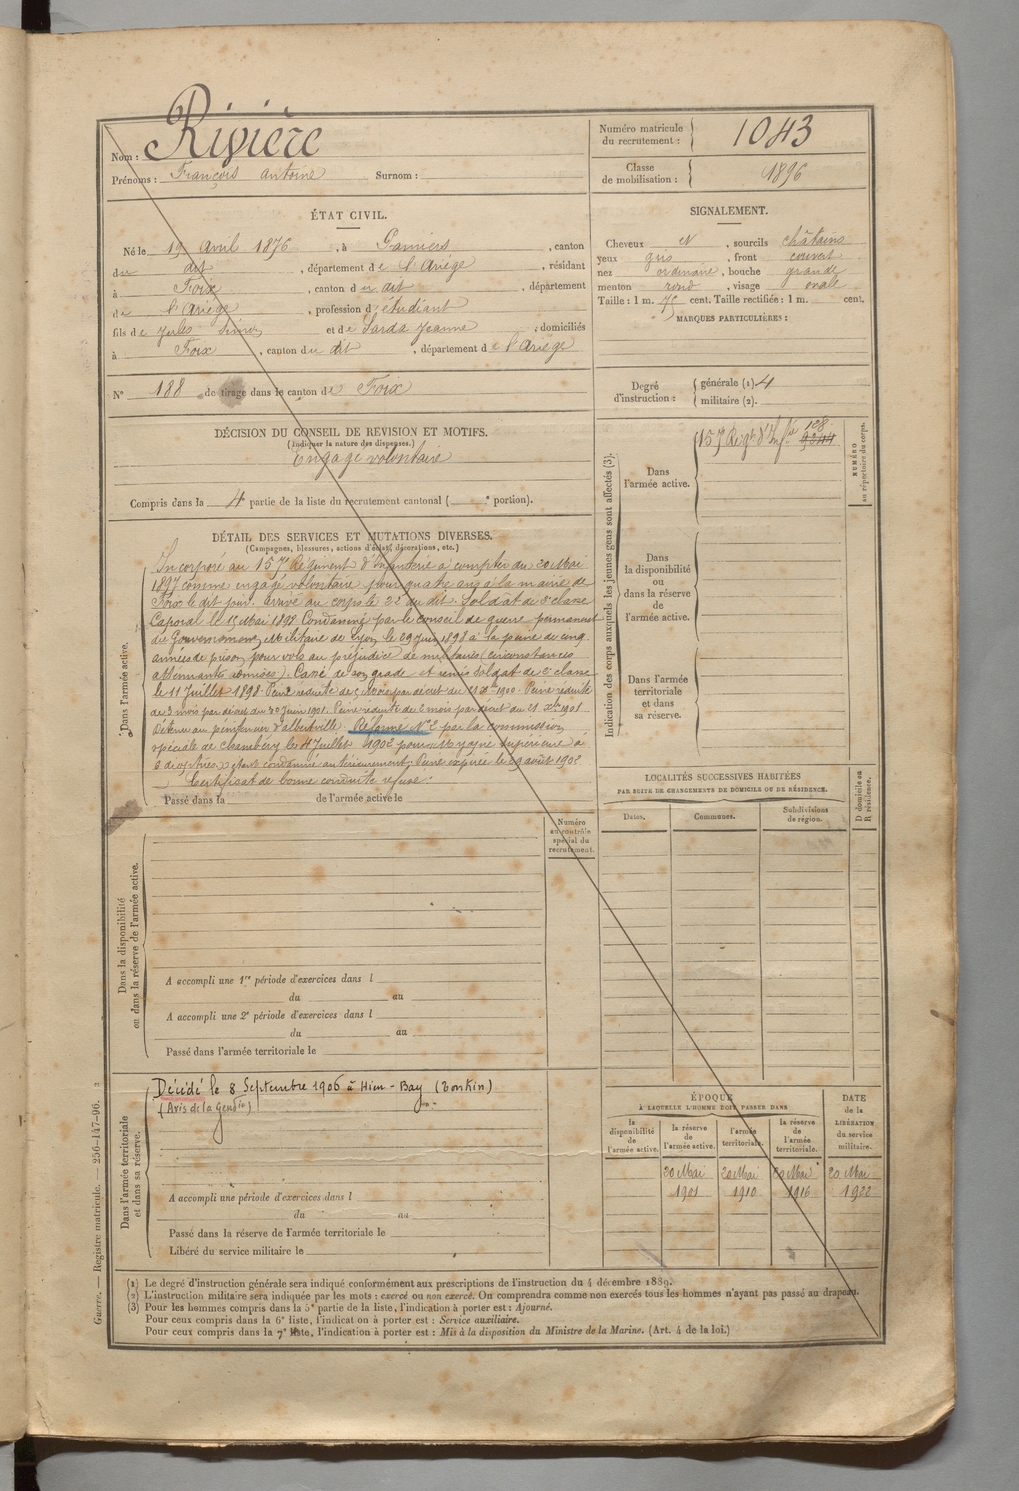 Nom : Rivière
Prénoms : François Antoine Surnom :
Numéro matricule du recrutement : 1043
Classe de mobilisation : 1896
ÉTAT CIVIL.
Né le 19 Avril 1876, à Pamiers, canton
du dit, département de l'Ariège, résidant
à Foix, canton du dit, département
de l'Ariège, profession d'étudiant
fils de Jules Simon et de Sarda Jeanne, domiciliés
à Foix, canton du dit, département de l'Ariège
N° 188 de tirage dans le canton de Foix
DÉCISION DU CONSEIL DE REVISION ET MOTIFS.
(Indiquer la nature des dispenses.)
Engagé volontaire
Compris dans la 4 partie de la liste du recrutement cantonal ( e portion).
SIGNALEMENT.
Cheveux N, sourcils châtains
yeux gris, front couvert
nez ordinaire, bouche grande
menton rond, visage ovale
Taille : 1 m. 75 cent. Taille rectifiée : 1 m. cent.
MARQUES PARTICULIÈRES :
Degré d'instruction : générale (1) 4
militaire (2).
DÉTAIL DES SERVICES ET MUTATIONS DIVERSES.
(Campagnes, blessures, actions d'éclat, décorations, etc.)
Dans l'armée active.
Incorporé au 157e Régiment d'Infanterie à compter du 20 Mai
1897 comme engagé volontaire pour quatre ans à la mairie de
Foix le dit jour. Arrivé au corps le 22 du dit. Soldat de 2e classe
Caporal le 15 Mai 1898. Condamné par le conseil de guerre permanent
du Gouvernement Militaire de Lyon le 29 Juin 1898 à la peine de cinq
années de prison pour vols au préjudice de militaires (circonstances
atténuantes admises). Cassé de son grade et remis Soldat de 2e classe
le 11 Juillet 1898. Peine réduite de mois par décret du 1900. Peine réduite
de 3 mois par décret du 30 Juin 1901. Peine réduite de 2 mois par décret du 21 Xbre 1901
Détenu au pénitencier d'Albertville. Réformé N°2 par la commission
spéciale de Chambéry le 4 Juillet 1902 pour Myopie supérieure à
6 dioptries étant condamné antérieurement. Peine expirée le 29 août 1902.
Certificat de bonne conduite refusé.
Passé dans la de l'armée active le
Indication des corps auxquels les jeunes gens sont affectés (3).
NUMÉRO au répertoire du corps.
Dans l'armée active.
157 Régt d'Infie 128
Dans la disponibilité ou dans la réserve de l'armée active.
Dans l'armée territoriale et dans sa réserve.
LOCALITÉS SUCCESSIVES HABITÉES
PAR SUITE DE CHANGEMENTS DE DOMICILE OU DE RÉSIDENCE.
Dates. Communes. Subdivisions de région. D domicile ou R résidence.
Numéro au contrôle spécial du recrutement.
Dans la disponibilité ou dans la réserve de l'armée active.
A accompli une 1re période d'exercices dans l
du au
A accompli une 2e période d'exercices dans l
du au
Passé dans l'armée territoriale le
Dans l'armée territoriale et dans sa réserve.
Décédé le 8 Septembre 1906 à Hien-Bay (Tonkin)
(Avis de la Gendie)
A accompli une période d'exercices dans l
du au
Passé dans la réserve de l'armée territoriale le
Libéré du service militaire le
ÉPOQUE
À LAQUELLE L'HOMME DOIT PASSER DANS
la disponibilité de l'armée active. la réserve de l'armée active. l'armée territoriale. la réserve de l'armée territoriale. DATE de la LIBÉRATION du service militaire.
20 Mai 20 Mai 20 Mai 20 Mai
1901 1910 1916 1922
(1) Le degré d'instruction générale sera indiqué conformément aux prescriptions de l'instruction du 4 décembre 1889.
(2) L'instruction militaire sera indiquée par les mots : exercé ou non exercé. On comprendra comme non exercés tous les hommes n'ayant pas passé au drapeau.
(3) Pour les hommes compris dans la 5e partie de la liste, l'indication à porter est : Ajourné.
Pour ceux compris dans la 6e liste, l'indication à porter est : Service auxiliaire.
Pour ceux compris dans la 7e liste, l'indication à porter est : Mis à la disposition du Ministre de la Marine. (Art. 4 de la loi.)
Guerre. — Registre matricule. — 256-147-96.